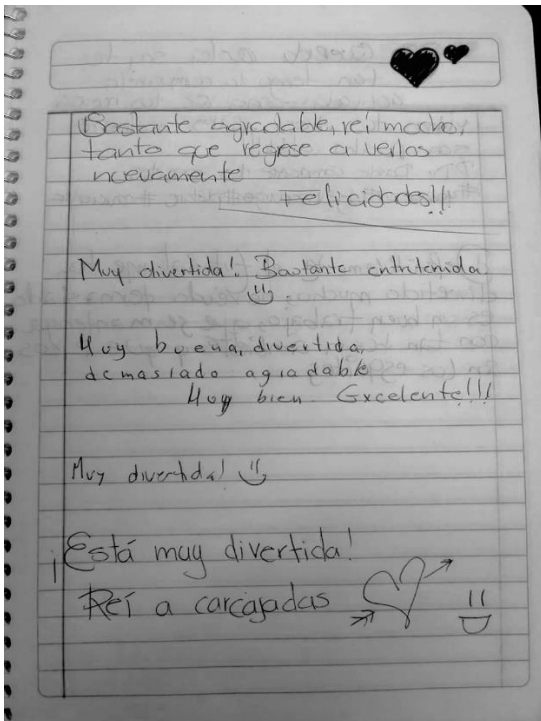 Bastante agradable, reí mucho,
tanto que regese a verlos
nuevamente
Felicidades!!!
Muy divertida! Bastante entritenida
Muy buena, divertida,
demasiado agradable
Muy bien Excelente!!!
Muy divertida!
¡Está muy divertida!
Reí a carcajadas